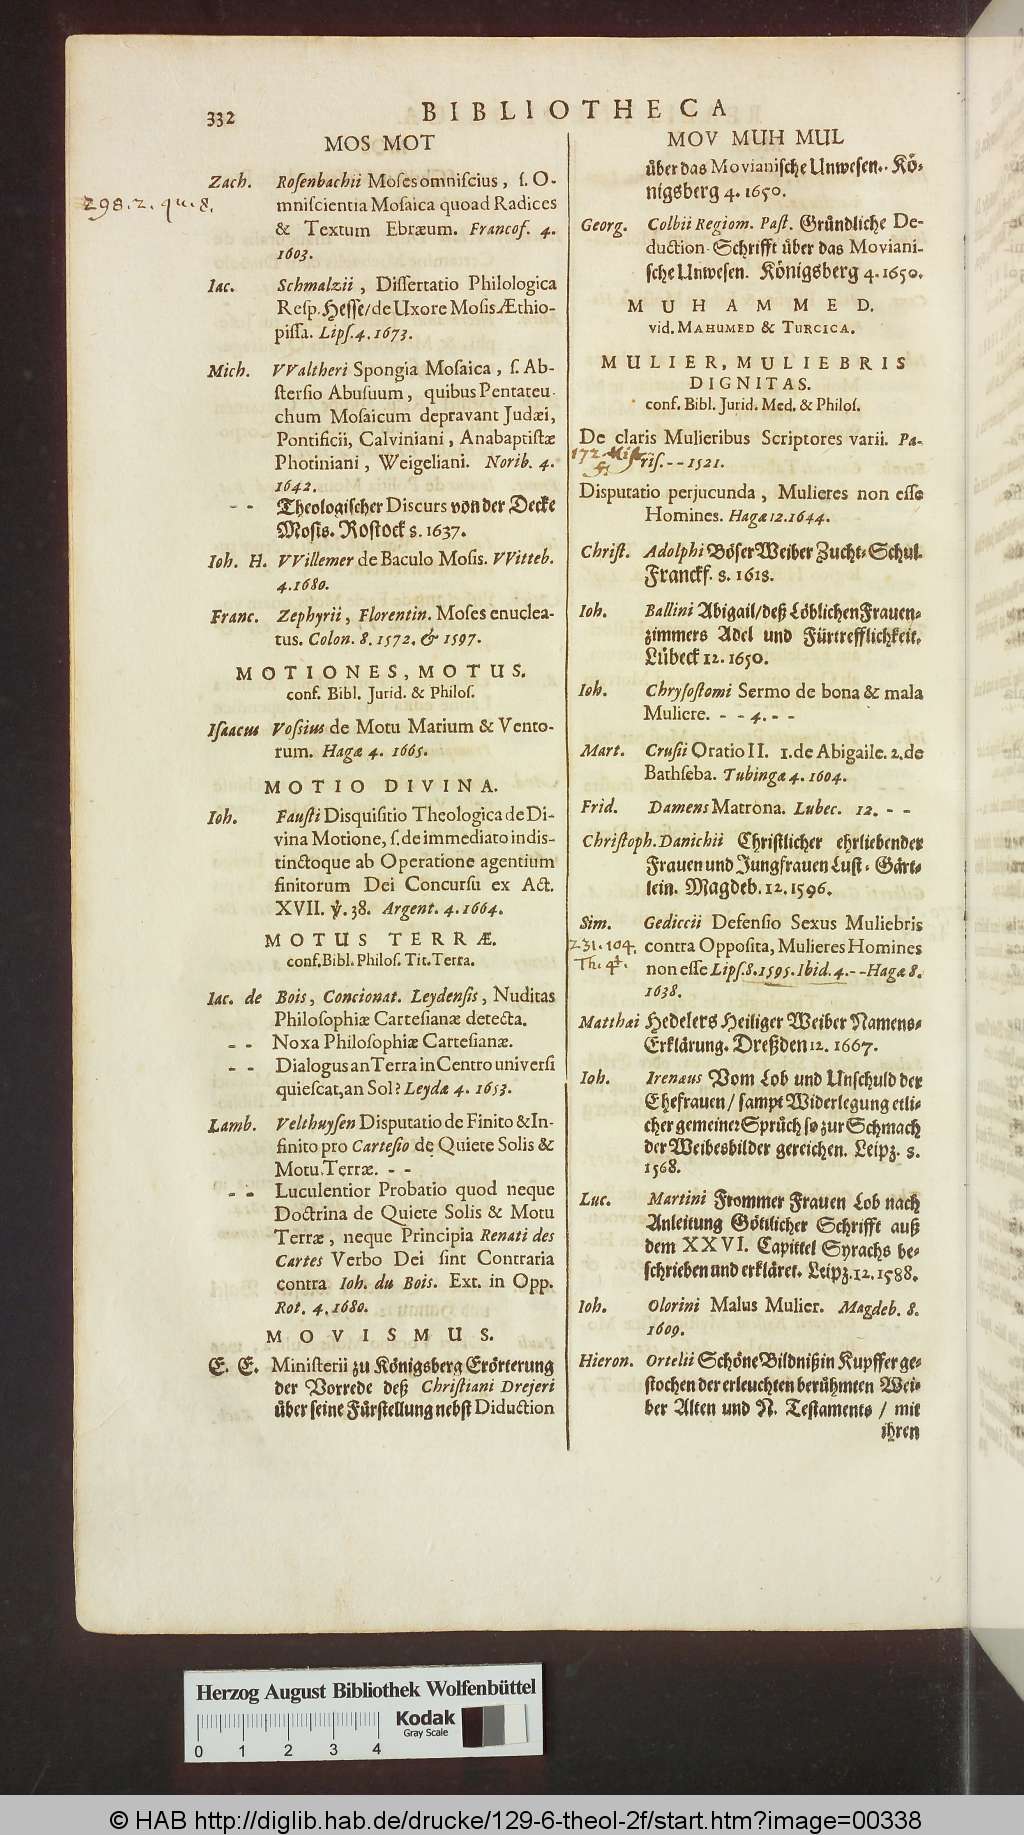 332
BIBLIOTHECA
MOS MOT
Zach. Rosenbachii Moses omniscius, ſ. O-
298. 2. qu. 8.
mniſcientia Moſaica quoad Radices
& Textum Ebræum. Francof. 4.
1603.
Iac. Schmalzii, Diſſertatio Philologica
Reſp. Heſſe/ de Uxore Moſis Æthio-
piſſa. Lipſ. 4. 1673.
Mich. VValtheri Spongia Moſaica, ſ. Ab-
ſterſio Abuſuum, quibus Pentateu-
chum Moſaicum depravant Judæi,
Pontificii, Calviniani, Anabaptiſtæ
Photiniani, Weigeliani. Norib. 4.
1642.
- - Theologiſcher Discurs von der Decke
Moſis. Roſtock 8. 1637.
Ioh. H. VVillemer de Baculo Moſis. VVitteb.
4. 1680.
Franc. Zephyrii, Florentin. Moſes enuclea-
tus. Colon. 8. 1572. & 1597.
MOTIONES, MOTUS.
conf. Bibl. Jurid. & Philoſ.
Iſaacus Voſſius de Motu Marium & Vento-
rum. Hagæ 4. 1665.
MOTIO DIVINA.
Ioh. Fauſti Disquiſitio Theologica de Di-
vina Motione, ſ. de immediato indis-
tinctoque ab Operatione agentium
finitorum Dei Concurſu ex Act.
XVII. ℣. 38. Argent. 4. 1664.
MOTUS TERRÆ.
conf. Bibl. Philoſ. Tit. Terra.
Iac. de Bois, Concionat. Leydenſis, Nuditas
Philoſophiæ Carteſianæ detecta.
- - Noxa Philoſophiæ Carteſianæ.
- - Dialogus an Terra in Centro universi
quieſcat, an Sol? Leydæ 4. 1653.
Lamb. Velthuyſen Disputatio de Finito & In-
finito pro Carteſio de Quiete Solis &
Motu Terræ. - -
- - Luculentior Probatio quod neque
Doctrina de Quiete Solis & Motu
Terræ, neque Principia Renati des
Cartes Verbo Dei ſint Contraria
contra Ioh. du Bois. Ext. in Opp.
Rot. 4. 1680.
MOVISMUS.
E. E. Miniſterii zu Königsberg Erörterung
der Vorrede deß Chriſtiani Drejeri
über ſeine Fürſtellung nebſt Diduction
MOV MUH MUL
über das Movianiſche Unweſen. Kö-
nigsberg 4. 1650.
Georg. Colbii Regiom. Paſt. Gründliche De-
duction-Schrifft über das Moviani-
ſche Unweſen. Königsberg 4. 1650.
MUHAMMED.
vid. MAHUMED & TURCICA.
MULIER, MULIEBRIS
DIGNITAS.
conf. Bibl. Jurid. Med. & Philoſ.
De claris Mulieribus Scriptores varii. Pa-
172.
riſ. - - 1521.
Disputatio perjucunda, Mulieres non eſſe
Homines. Hagæ 12. 1644.
Chriſt. Adolphi Böſer Weiber Zucht-Schul.
Franckf. 8. 1618.
Ioh. Ballini Abigail/ deß Löblichen Frauen-
zimmers Adel und Fürtrefflichkeit.
Lübeck 12. 1650.
Ioh. Chryſoſtomi Sermo de bona & mala
Muliere. - - 4. - -
Mart. Cruſii Oratio II. 1. de Abigaile. 2. de
Bathſeba. Tubingæ 4. 1604.
Frid. Damens Matrona. Lubec. 12. - -
Chriſtoph. Danichii Chriſtlicher ehrliebender
Frauen und Jungfrauen Luſt-Gärt-
lein. Magdeb. 12. 1596.
Sim. Gediccii Defenſio Sexus Muliebris
231. 104.
contra Oppoſita, Mulieres Homines
Th. 4t.
non eſſe Lipſ. 8. 1595. Ibid. 4. - - Hagæ 8.
1638.
Matthæi Hedelers Heiliger Weiber Namens-
Erklärung. Dreßden 12. 1667.
Ioh. Irenæus Vom Lob und Unſchuld der
Ehefrauen / ſampt Widerlegung etli-
cher gemeiner Sprüch ſo zur Schmach
der Weibesbilder gereichen. Leipz. 8.
1568.
Luc. Martini Frommer Frauen Lob nach
Anleitung Göttlicher Schrifft auß
dem XXVI. Capittel Syrachs be-
ſchrieben und erkläret. Leipz. 12. 1588.
Ioh. Olorini Malus Mulier. Magdeb. 8.
1609.
Hieron. Ortelii Schöne Bildniß in Kupffer ge-
ſtochen der erleuchten berühmten Wei-
ber Alten und N. Teſtaments / mit
ihren
Herzog August Bibliothek Wolfenbüttel
0 1 2 3 4
Kodak
Gray Scale
© HAB http://diglib.hab.de/drucke/129-6-theol-2f/start.htm?image=00338